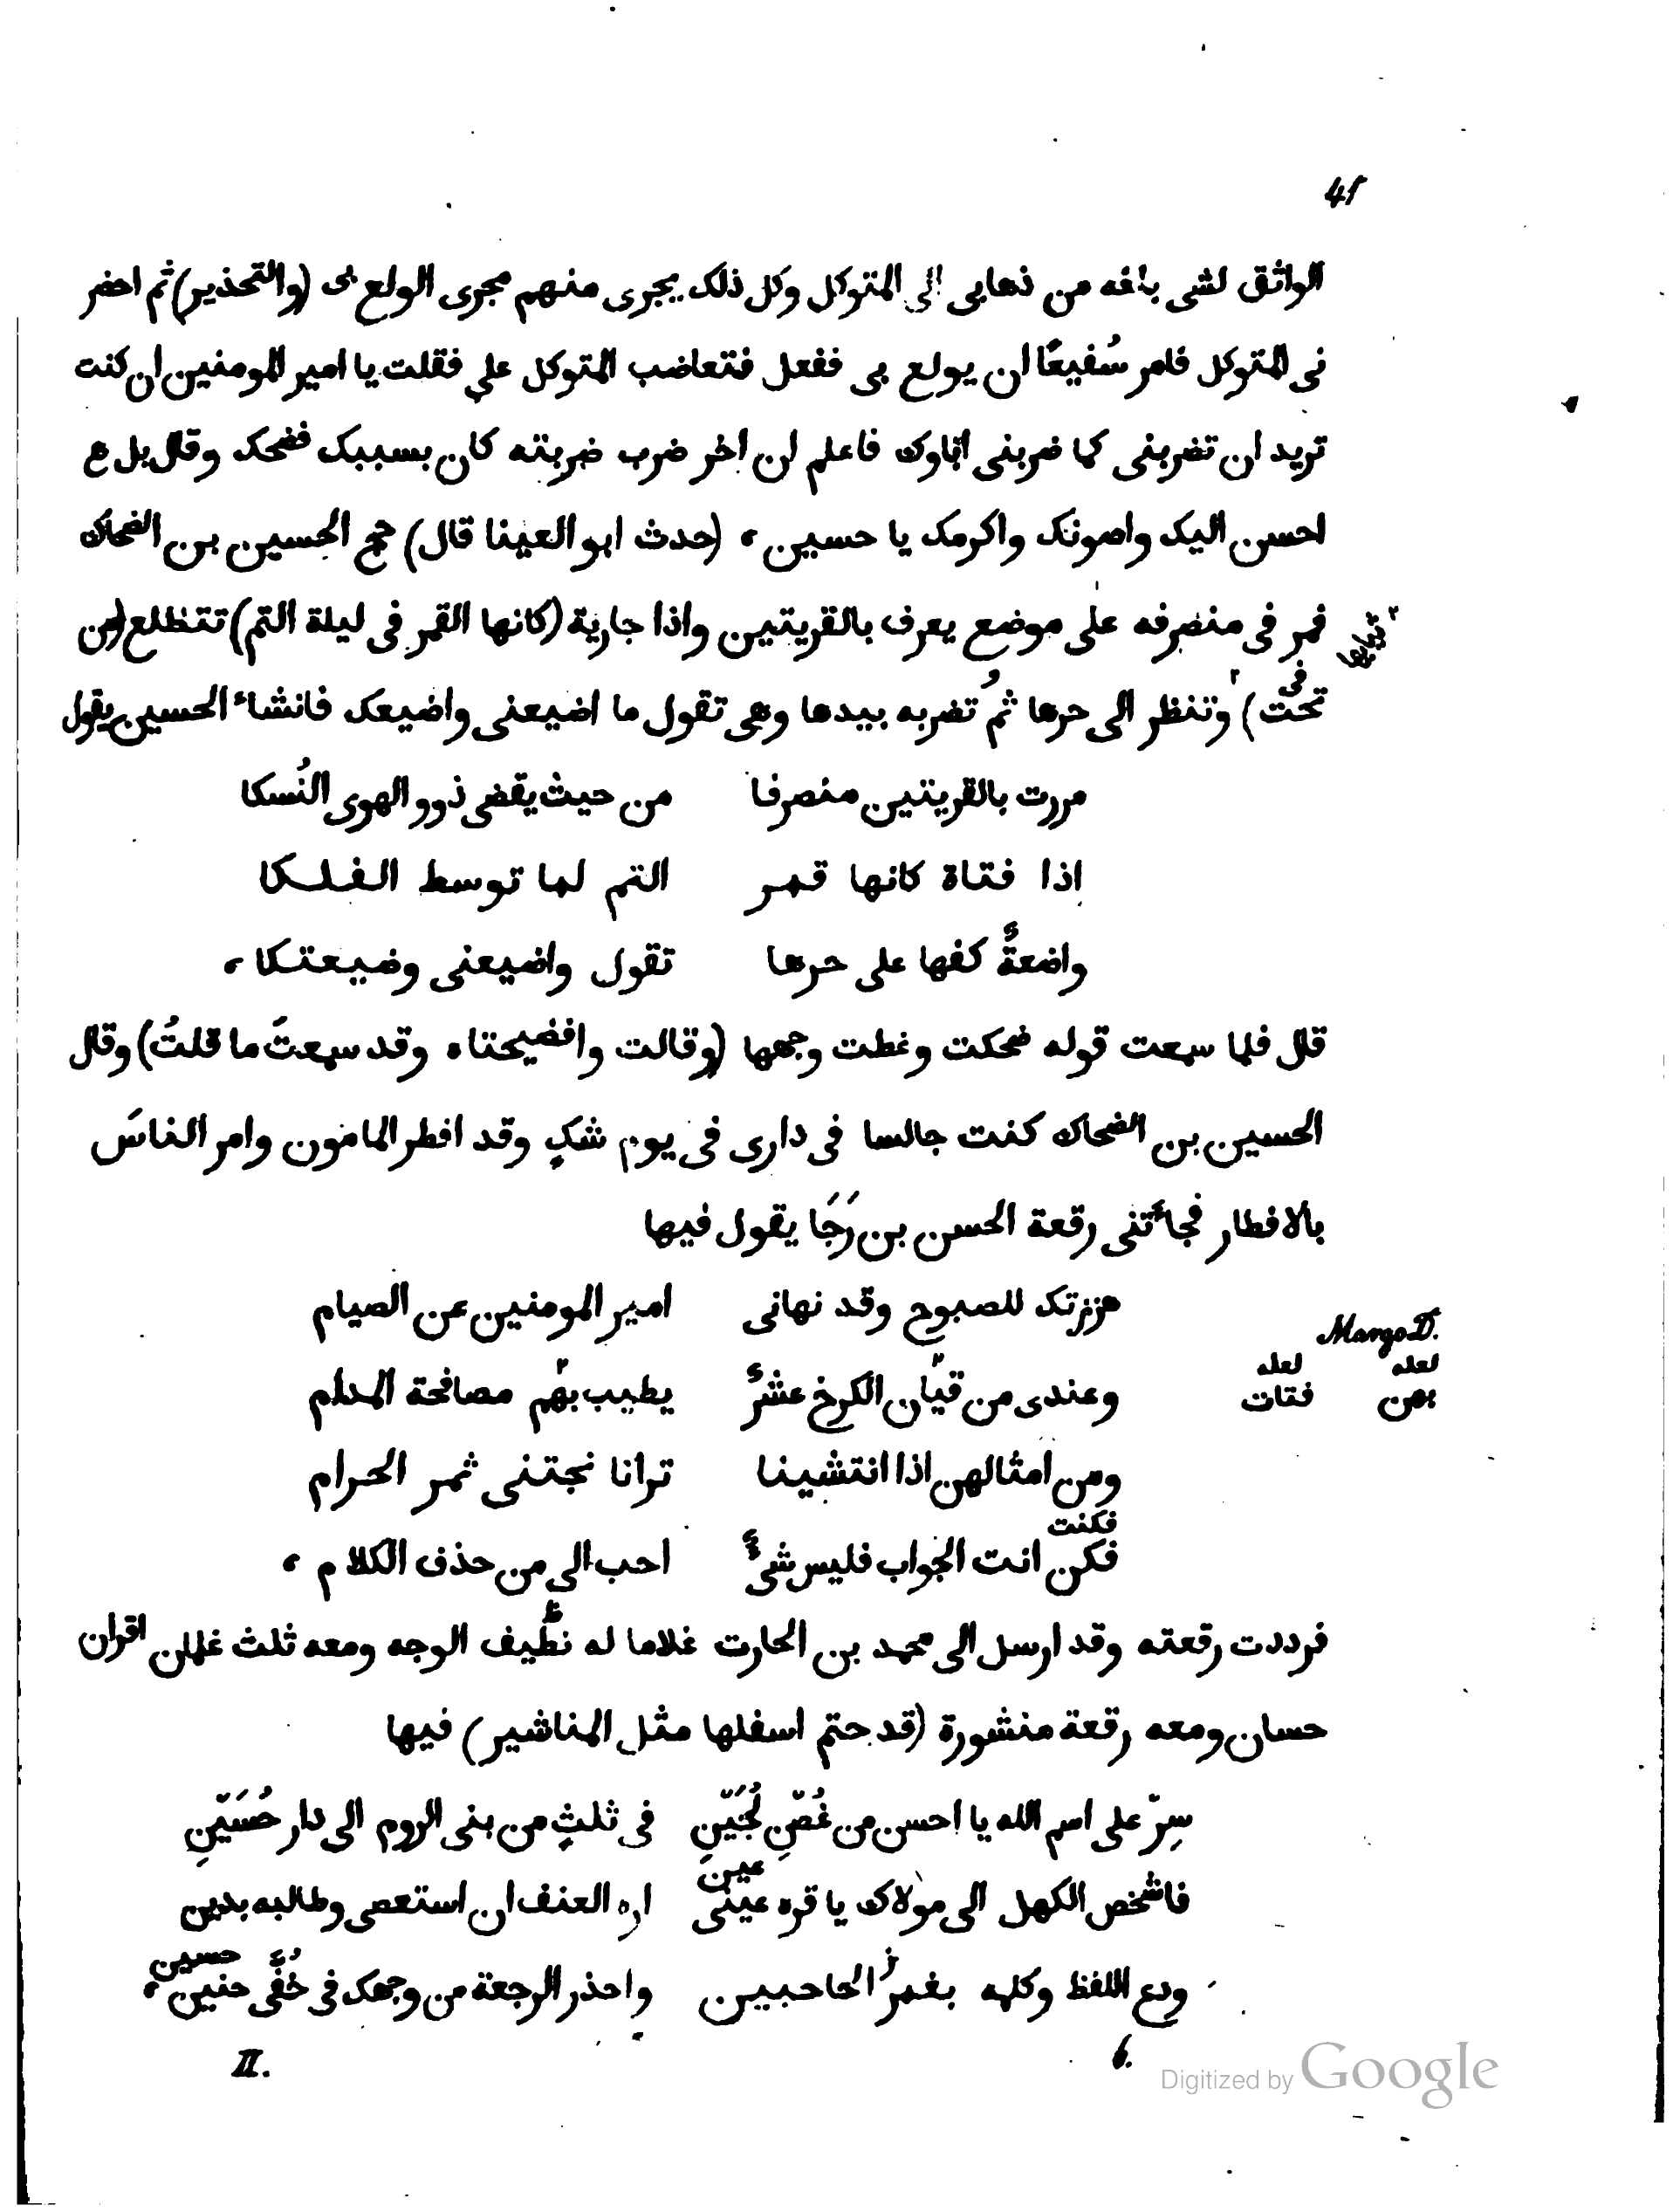 41
الواثق لشى بلغه من ذهابى الى المتوكل وكل ذلك يجرى منهم مجرى الولع بى (والتحذير) ثم احضر
نى المتوكل فامر شفيعًا ان يولع بى ففعل فتغاضب المتوكل على فقلت يا امير المومنين ان كنت
تريد ان تضربنى كما ضربنى اباوك فاعلم ان اخر ضرب ضربته كان بسببك فضحك وقال بل
احسن اليك واصونك واكرمك يا حسين، (حدث ابو العينا قال) حج الحسين بن الضحاك
فمر فى منصرفه على موضع يعرف بالقريتين واذا جارية (كانها القمر فى ليلة التم) تتطلع (من
فى
تحت) وتنظر الى حرها ثمُ تضربه بيدها وهى تقول ما اضيعنى واضيعك فانشاء الحسين يقول
مررت بالقريتين منصرفا من حيث يقضى ذوو الهوى النُسكا
اذا فتاة كانها قمر التم لما توسط الفلكا
واضعةٌ كفها على حرها تقول واضيعنى وضيعتكا،
قال فلما سمعت قوله ضحكت وغطت وجهها (وقالت وافضيحتاه وقد سمعتَ ما قلتُ) وقال
الحسين بن الضحاك كنت جالسا فى دارى فى يوم شكٍ وقد افطر المامون وامر الناسَ
بالافطار فجأتنى رقعة الحسن بن رَجَا يقول فيها
هززتك للصبوح وقد نهانى امير المومنين عن الصيام
Margo D.
لعله لعله
بهن فتات
وعندى من قيان الكرخ عشرٌ يطيب بهم مصافحة المدام
ومن امثالهن اذا انتشينا ترانا نجتنى ثمر الحرام
فكنت
فكن انت الجواب فليس شىٌ احب الى من حذف الكلام،
فرددت رقعته وقد ارسل الى محمد بن الحارت غلاما له نظيف الوجه ومعه ثلث غلمان اقران
حسان ومعه رقعة منشورة (قد حتم اسفلها مثل المناشير) فيها
سِرّ على اسم الله يا احسن من غُصّنِ لُجَيّنِ فى ثلثٍ من بنى الروم الى دار حُسَيّنِ
عين
فاشخص الكهل الى مولاك يا قره عينى اره العنف ان استعصى وطالبه بدين
حسين
ودع اللفظ وكلمه بغمز الحاجبين واحذر الرجعة من وجهك فى خُفَّى حنين،
II. 6.
Digitized by Google